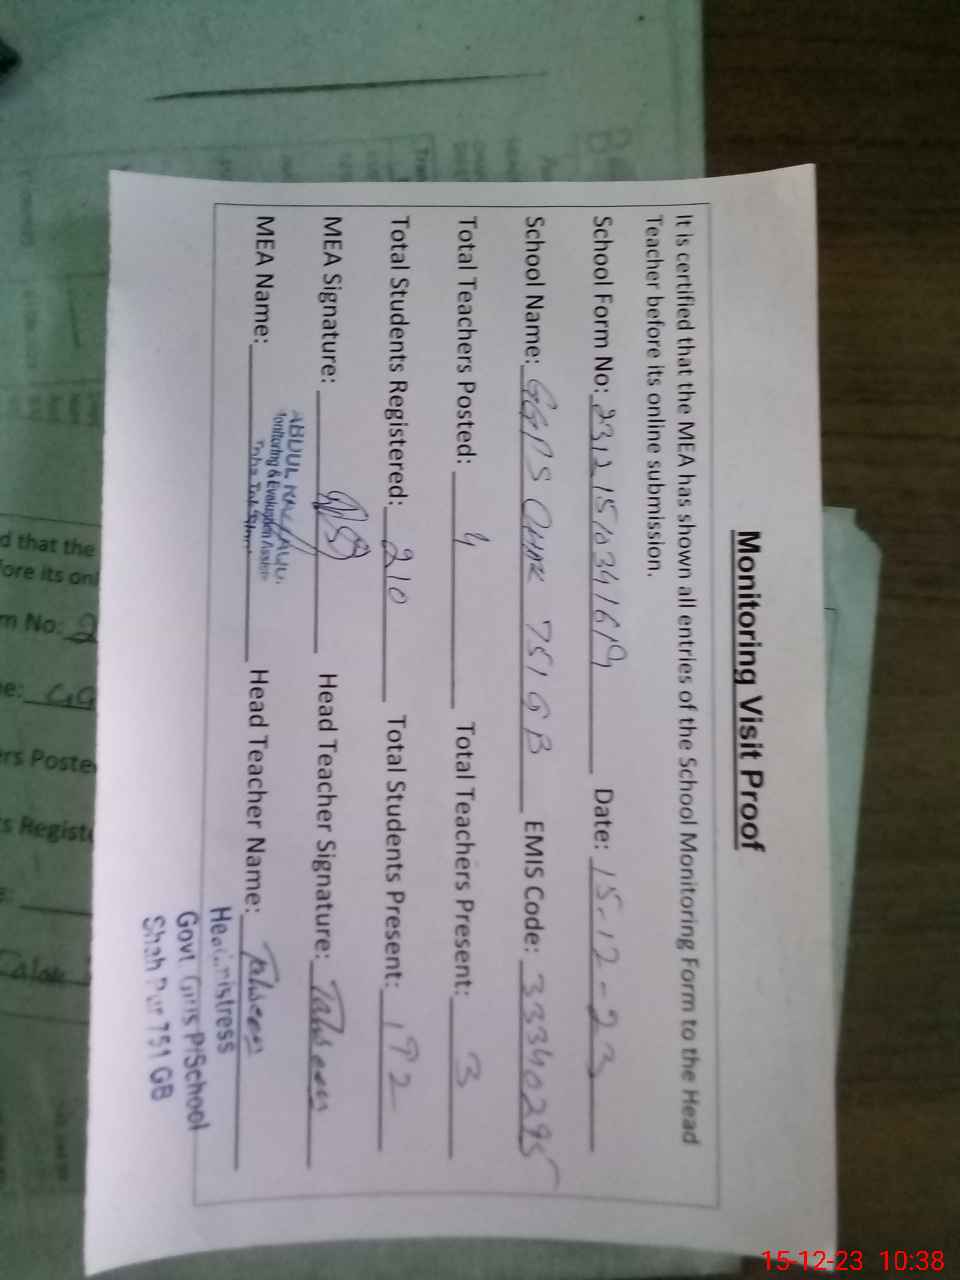 Monitoring Visit Proof
It is certified that the MEA has shown all entries of the School Monitoring Form to the Head
Teacher before its online submission.
School Form No: Date: 15-12-23
School Name: GGPS CHAK 751 GB EMIS Code: 33340295
Total Teachers Posted: 4 Total Teachers Present: 3
Total Students Registered: 210 Total Students Present: 192
MEA Signature: Head Teacher Signature: Tahseen
MEA Name: ABDUL Head Teacher Name: Tahseen
Monitoring & Evaluation
Headmistress
Govt. Girls P/School
Shah Pur 751 GB
d that the
ore its onl
m No: 2
e: GG
rs Poste
s Registe
15-12-23 10:38